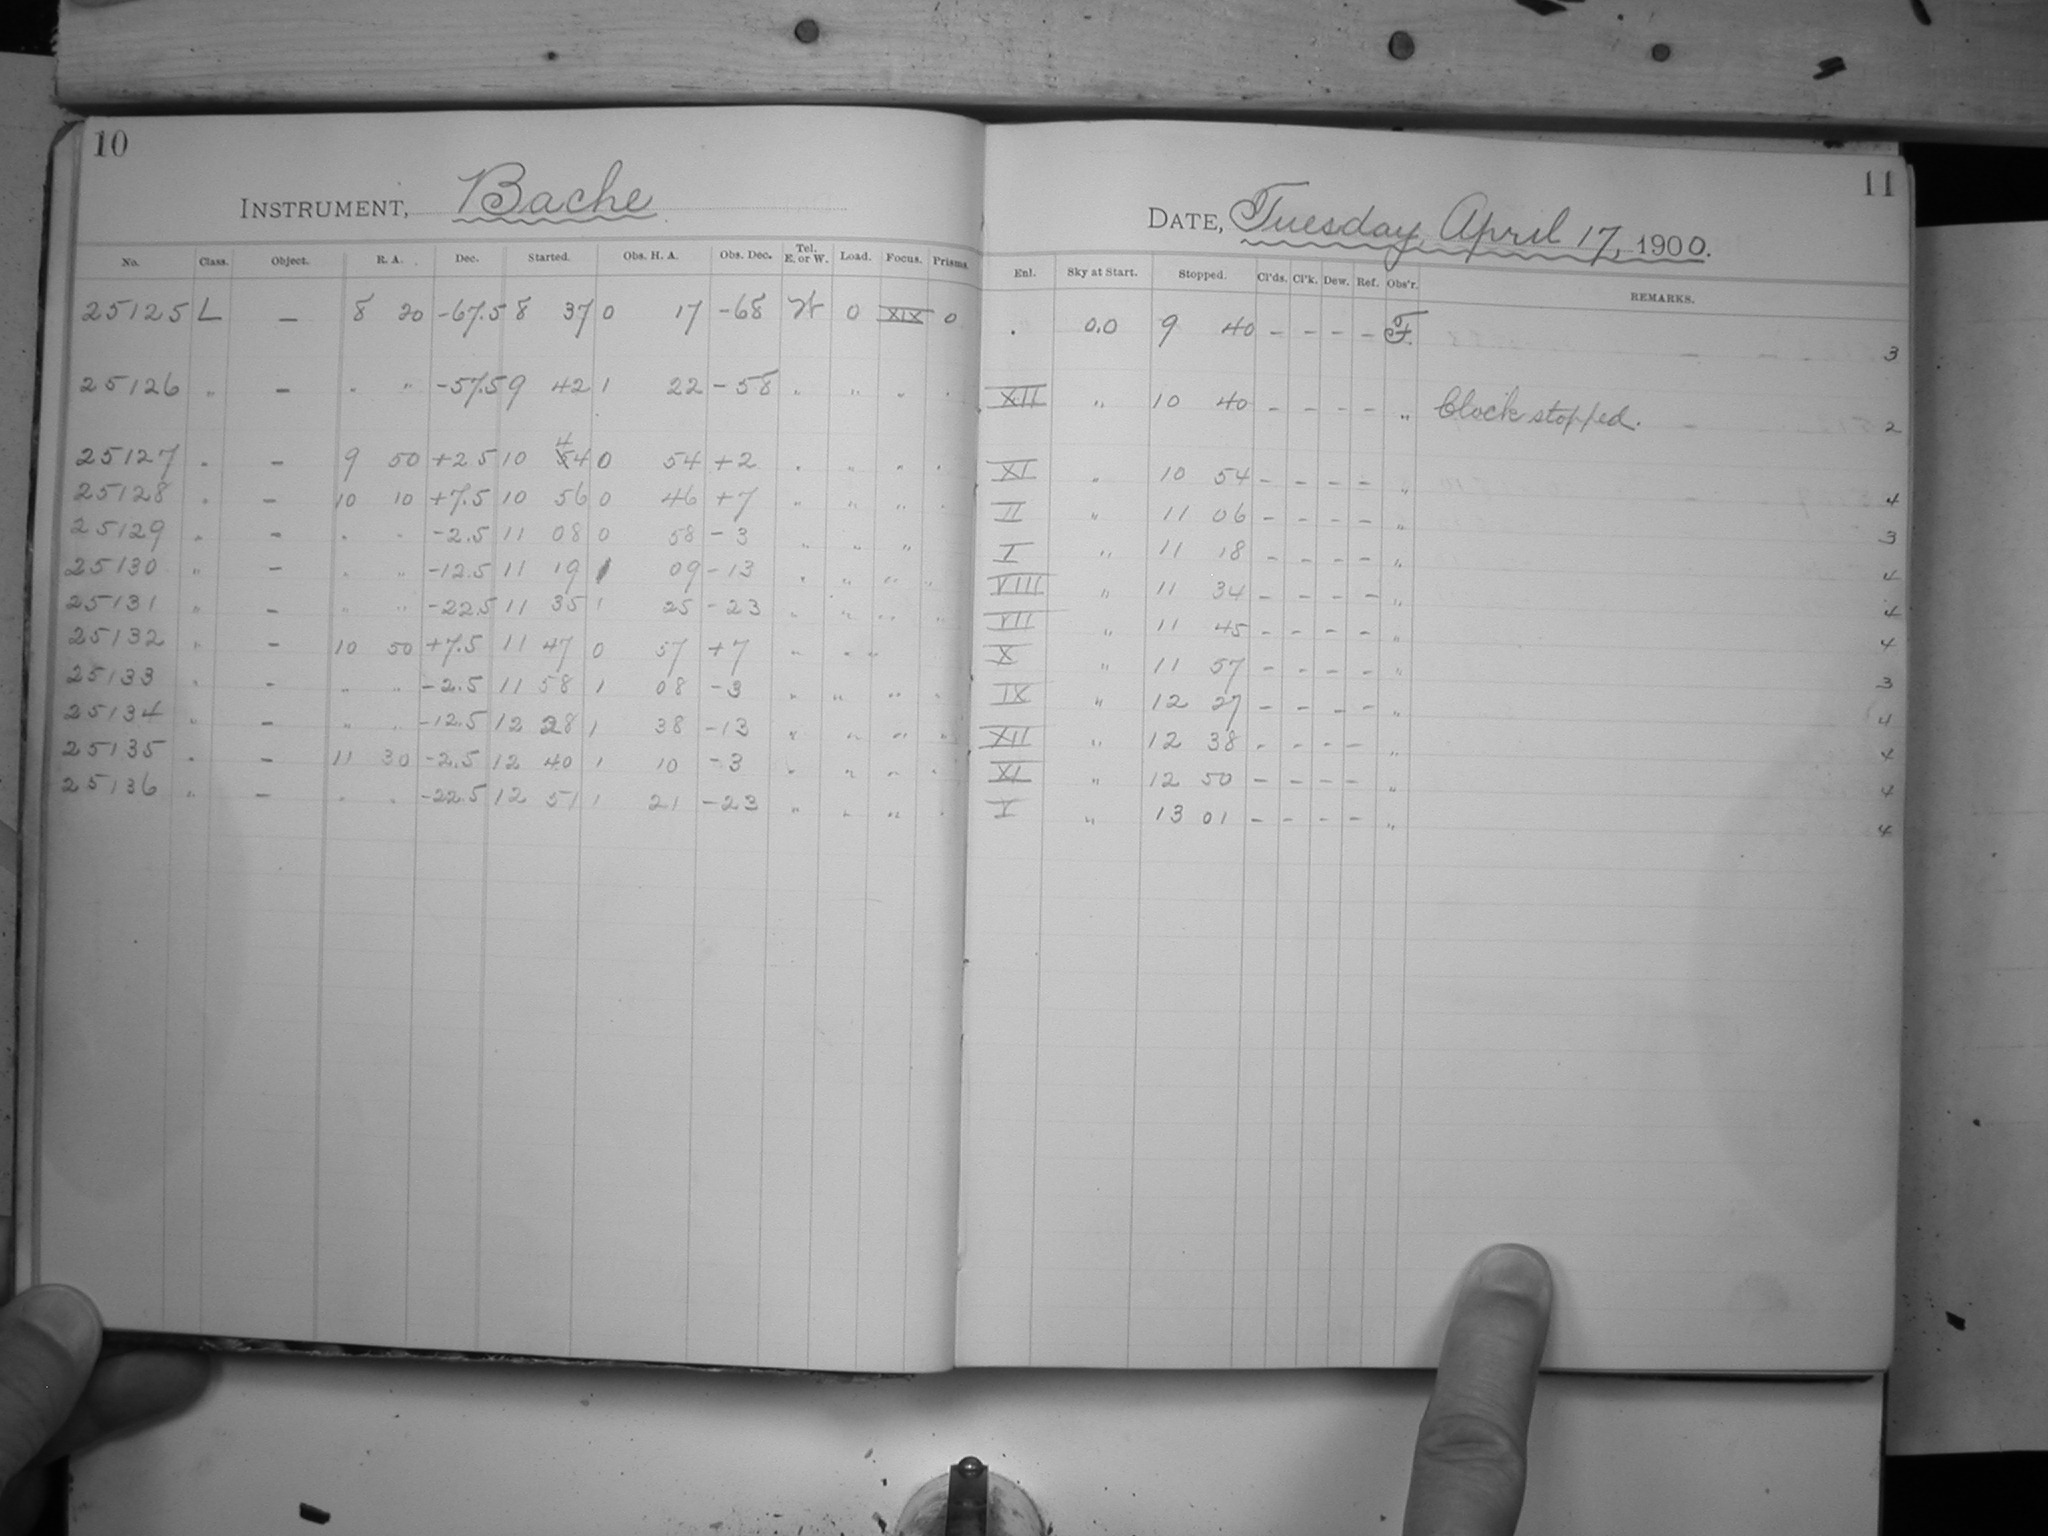 10
INSTRUMENT, Bache
No. Class. Object. R. A. Dec. Started. Obs. H. A. Obs. Dec. Tel. E. or W. Load. Focus. Prisms.
25125 L — 8 20 -67.5 8 37 0 17 -68 W 0 XIX 0
25126 " — " " -57.5 9 42 1 22 -58 " " " "
25127 " — 9 50 +2.5 10 44 0 54 +2 " " " "
25128 " — 10 10 +7.5 10 56 0 46 +7 " " " "
25129 " — " " -2.5 11 08 0 58 -3 " " "
25130 " — " " -12.5 11 19 1 09 -13 " " " "
25131 " — " " -22.5 11 35 1 25 -23 " " " "
25132 " — 10 50 +7.5 11 47 0 57 +7 " " "
25133 " — " " -2.5 11 58 1 08 -3 " " " "
25134 " — " " -12.5 12 28 1 38 -13 " " " "
25135 " — 11 30 -2.5 12 40 1 10 -3 " " " "
25136 " — " " -22.5 12 51 1 21 -23 " " " "
11
DATE, Tuesday, April 17, 1900.
Enl. Sky at Start. Stopped. Cl'ds. Cl'k. Dew. Ref. Obs'r. REMARKS.
. 0.0 9 40 — — — — F. 3
XII " 10 40 — — — — " Clock stopped. 2
XI " 10 54 — — — — " 4
II " 11 06 — — — — " 3
I " 11 18 — — — — " 4
VIII " 11 34 — — — — " 4
VII " 11 45 — — — — " 4
X " 11 57 — — — — " 3
IX " 12 27 — — — — " 4
XII " 12 38 — — — — " 4
XI " 12 50 — — — — " 4
V " 13 01 — — — — " 4